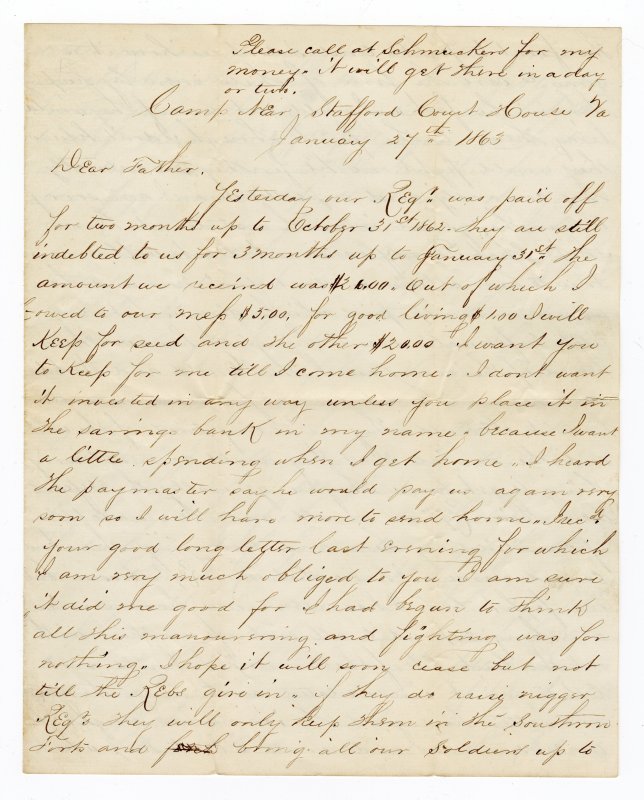 Please call at Schmuckers for my
money. it will get there in a day
or two.
Camp Near Stafford Court House Va
January 27th 1863
Dear Father.
Yesterday our Regt was paid off
for two months up to October 31st 1862. they are still
indebted to us for 3 months up to January 31st. The
amount we received was $26.00. Out of which I
owed to our mess $5.00, for good living $1.00 I will
Keep for seed and the other $20.00 I want you
to keep for me till I come home. I dont want
it invested in any way unless you place it in
the savings bank in my name. because I want
a little spending when I get home. I heard
the paymaster say he would pay us again very
soon so I will have more to send home. I recd
your good long letter last evening for which
I am very much obliged to you I am sure
it did me good for I had began to think
all this manouvering and fighting was for
nothing. I hope it will soon cease but not
till the Rebs give in. if they do raise nigger
Regts they will only keep them in the Southron
Forts and bring all our soldiers up to